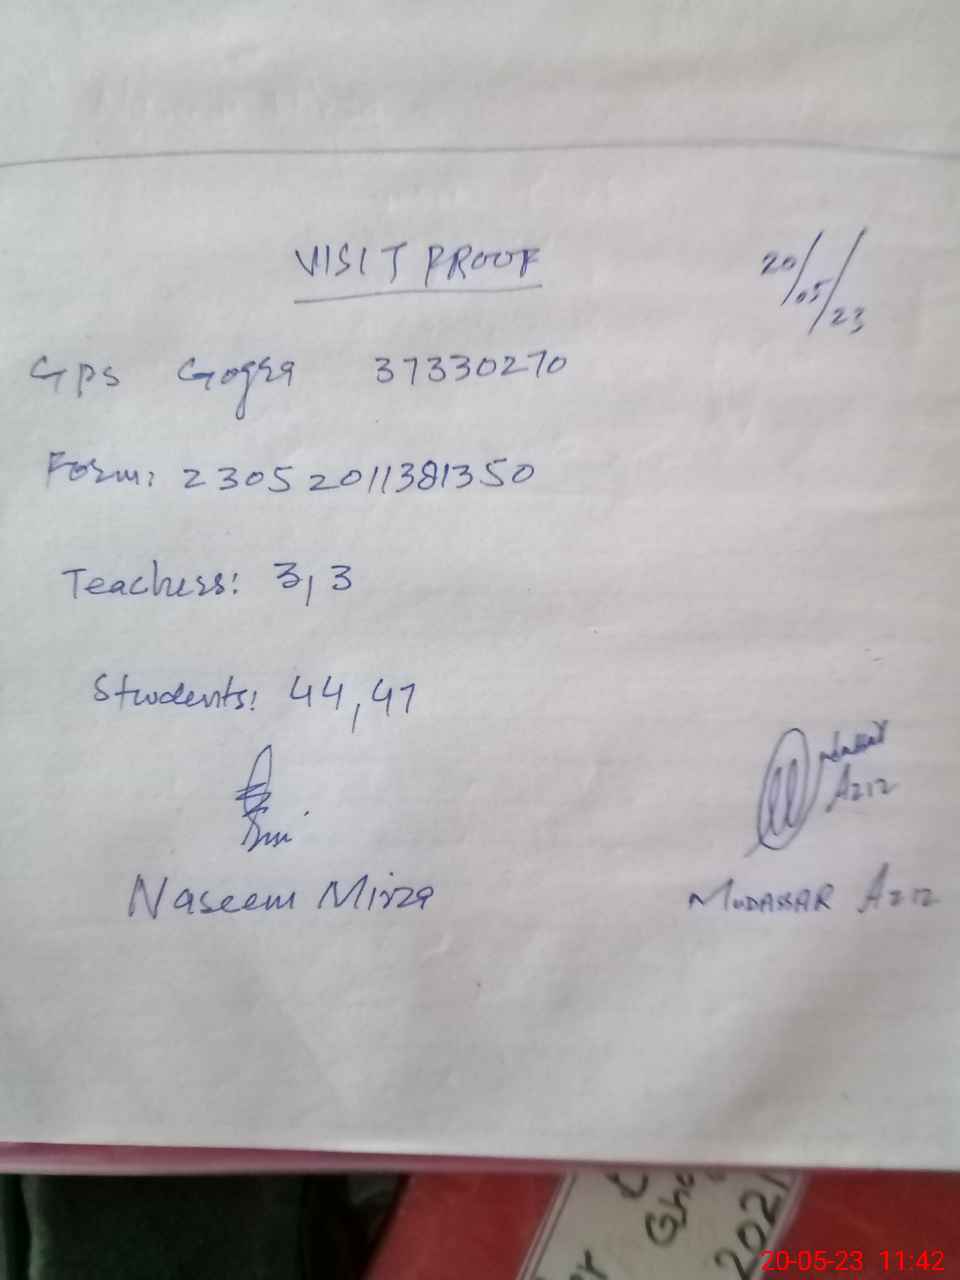 VISIT PROOF
20/05/23
GPS Gogra 37330270
Form: 23052011381350
Teachers: 3, 3
Students: 44, 47
Aziz
Naseem Mirza
MUDASSAR AZIZ
2021
20-05-23 11:42